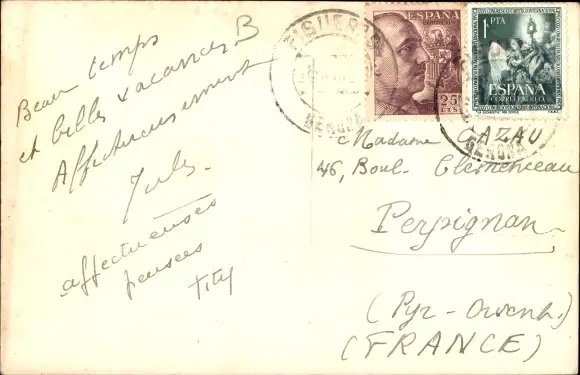 Beau temps
et belles vacances B
Affectueusement
Jules
affectueuses
pensees
Tity
FIGUERAS
GERONA
ESPAÑA
CORREOS
25
CTS
1 PTA
ESPAÑA
CORREO AEREO
GERONA
Madame CAZAU
46, Boul. Clemenceau
Perpignan
(Pyr-Orient.)
(FRANCE)